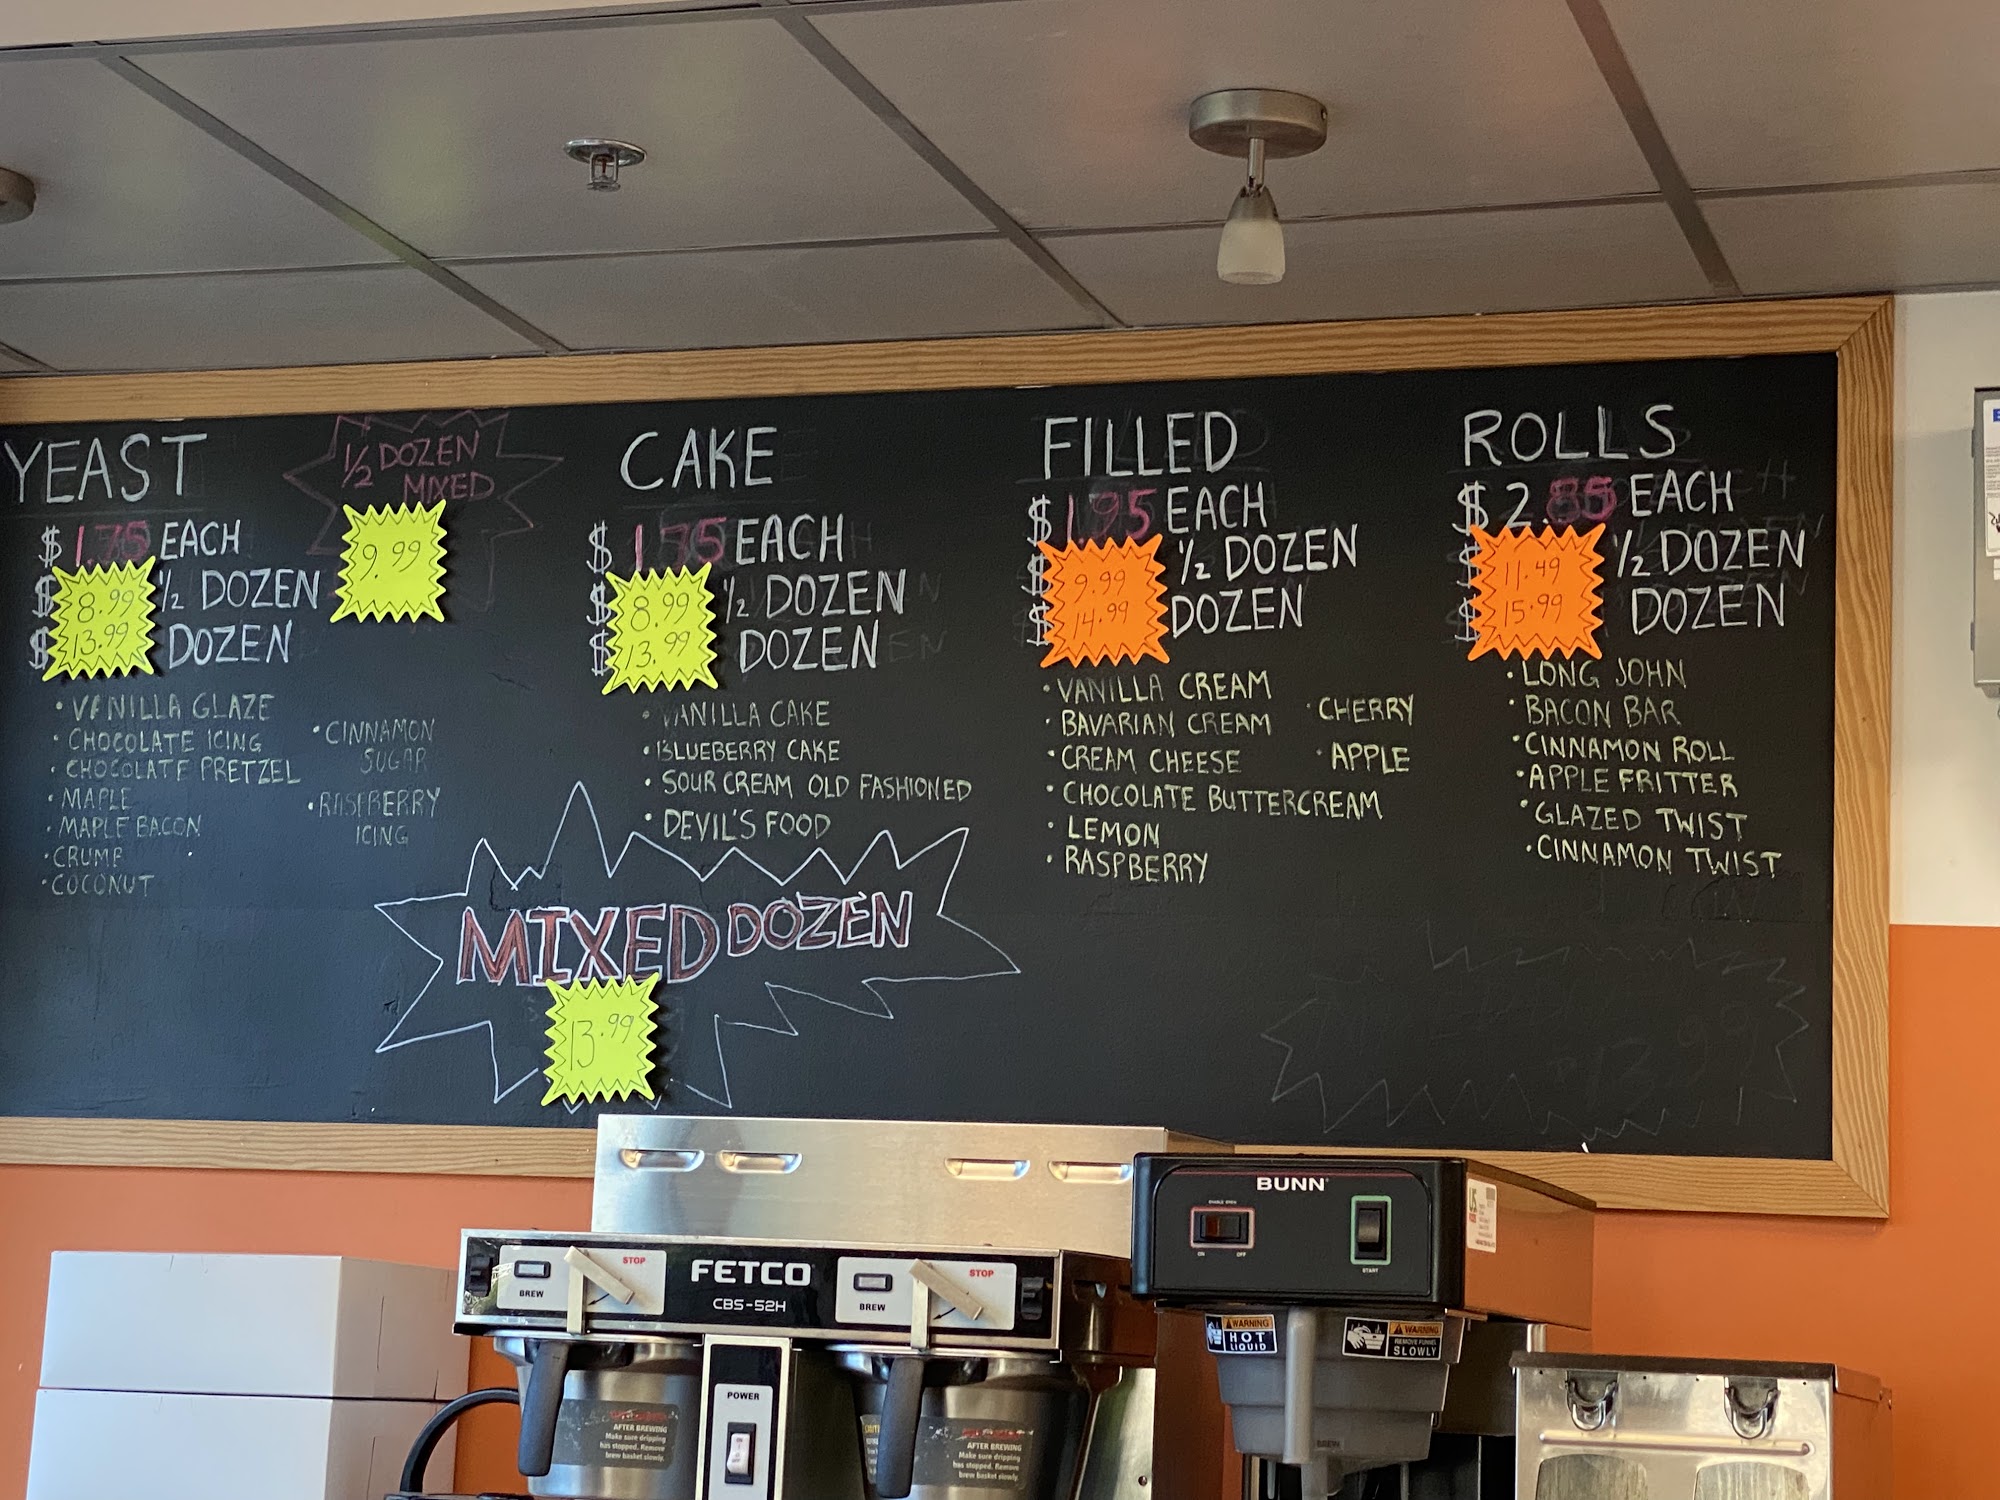 YEAST
$ 1.75 EACH
$ 8.99 1/2 DOZEN
$ 13.99 DOZEN
• VANILLA GLAZE
• CHOCOLATE ICING
• CHOCOLATE PRETZEL
• MAPLE
• MAPLE BACON
• CRUMB
• COCONUT
• CINNAMON
SUGAR
• RASPBERRY
ICING
1/2 DOZEN
MIXED
9.99
CAKE
$ 1.75 EACH
$ 8.99 1/2 DOZEN
$ 13.99 DOZEN
• VANILLA CAKE
• BLUEBERRY CAKE
• SOUR CREAM OLD FASHIONED
• DEVIL'S FOOD
MIXED DOZEN
13.99
FILLED
$ 1.95 EACH
$ 9.99 1/2 DOZEN
$ 14.99 DOZEN
• VANILLA CREAM
• BAVARIAN CREAM
• CREAM CHEESE
• CHOCOLATE BUTTERCREAM
• LEMON
• RASPBERRY
• CHERRY
• APPLE
ROLLS
$ 2.85 EACH
$ 11.49 1/2 DOZEN
$ 15.99 DOZEN
• LONG JOHN
• BACON BAR
• CINNAMON ROLL
• APPLE FRITTER
• GLAZED TWIST
• CINNAMON TWIST
13.99
FETCO
CBS-52H
BREW
STOP
BREW
STOP
POWER
AFTER BREWING
Make sure dripping
has stopped. Remove
brew basket slowly.
AFTER BREWING
Make sure dripping
has stopped. Remove
brew basket slowly.
BUNN
ON OFF
START
WARNING
HOT
LIQUID
WARNING
REMOVE FUNNEL
SLOWLY